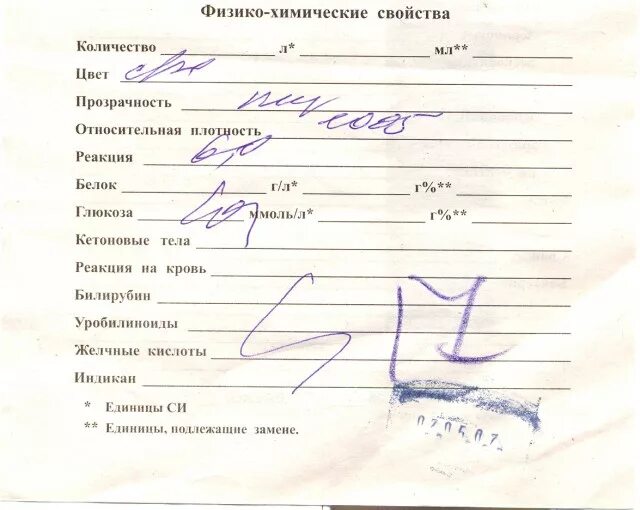 Физико-химические свойства
Количество л* мл**
Цвет
Прозрачность
Относительная плотность 1025
Реакция 6,0
Белок г/л* г%**
Глюкоза ммоль/л* г%**
Кетоновые тела
Реакция на кровь
Билирубин
Уробилиноиды
Желчные кислоты
Индикан
* Единицы СИ
** Единицы, подлежащие замене.
020507